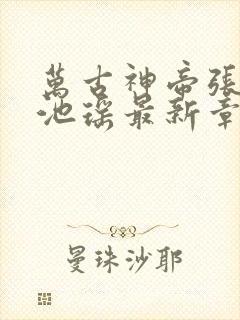 萬古神帝張
池瑤最新章
曼珠沙耶